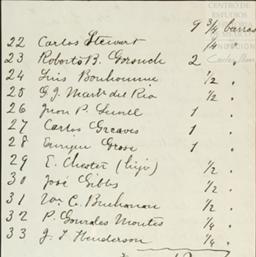 9 3/4 barras
22 Carlos Stewart 1/4 "
23 Roberto B. Gorsuch 2 "
24 Luis Bonhomme 1/2 "
25 G. J. Mart. del Rio 1/2 "
26 Juan P. 1 "
27 Carlos Greaves 1 "
28 Enrique Grose 1 "
29 E. Chester (hijo) 1/2 "
30 José Gibbs 1/2 "
31 Wm C. Buchanan 1/2 "
32 P. Gonzales Montes 1/4 "
33 J. T. Henderson 1/4 "